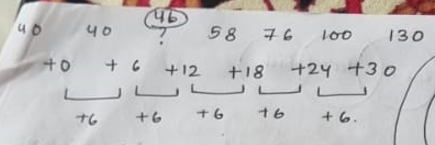 46
40 40 ? 58 76 100 130
+0 +6 +12 +18 +24 +30
+6 +6 +6 +6 +6.